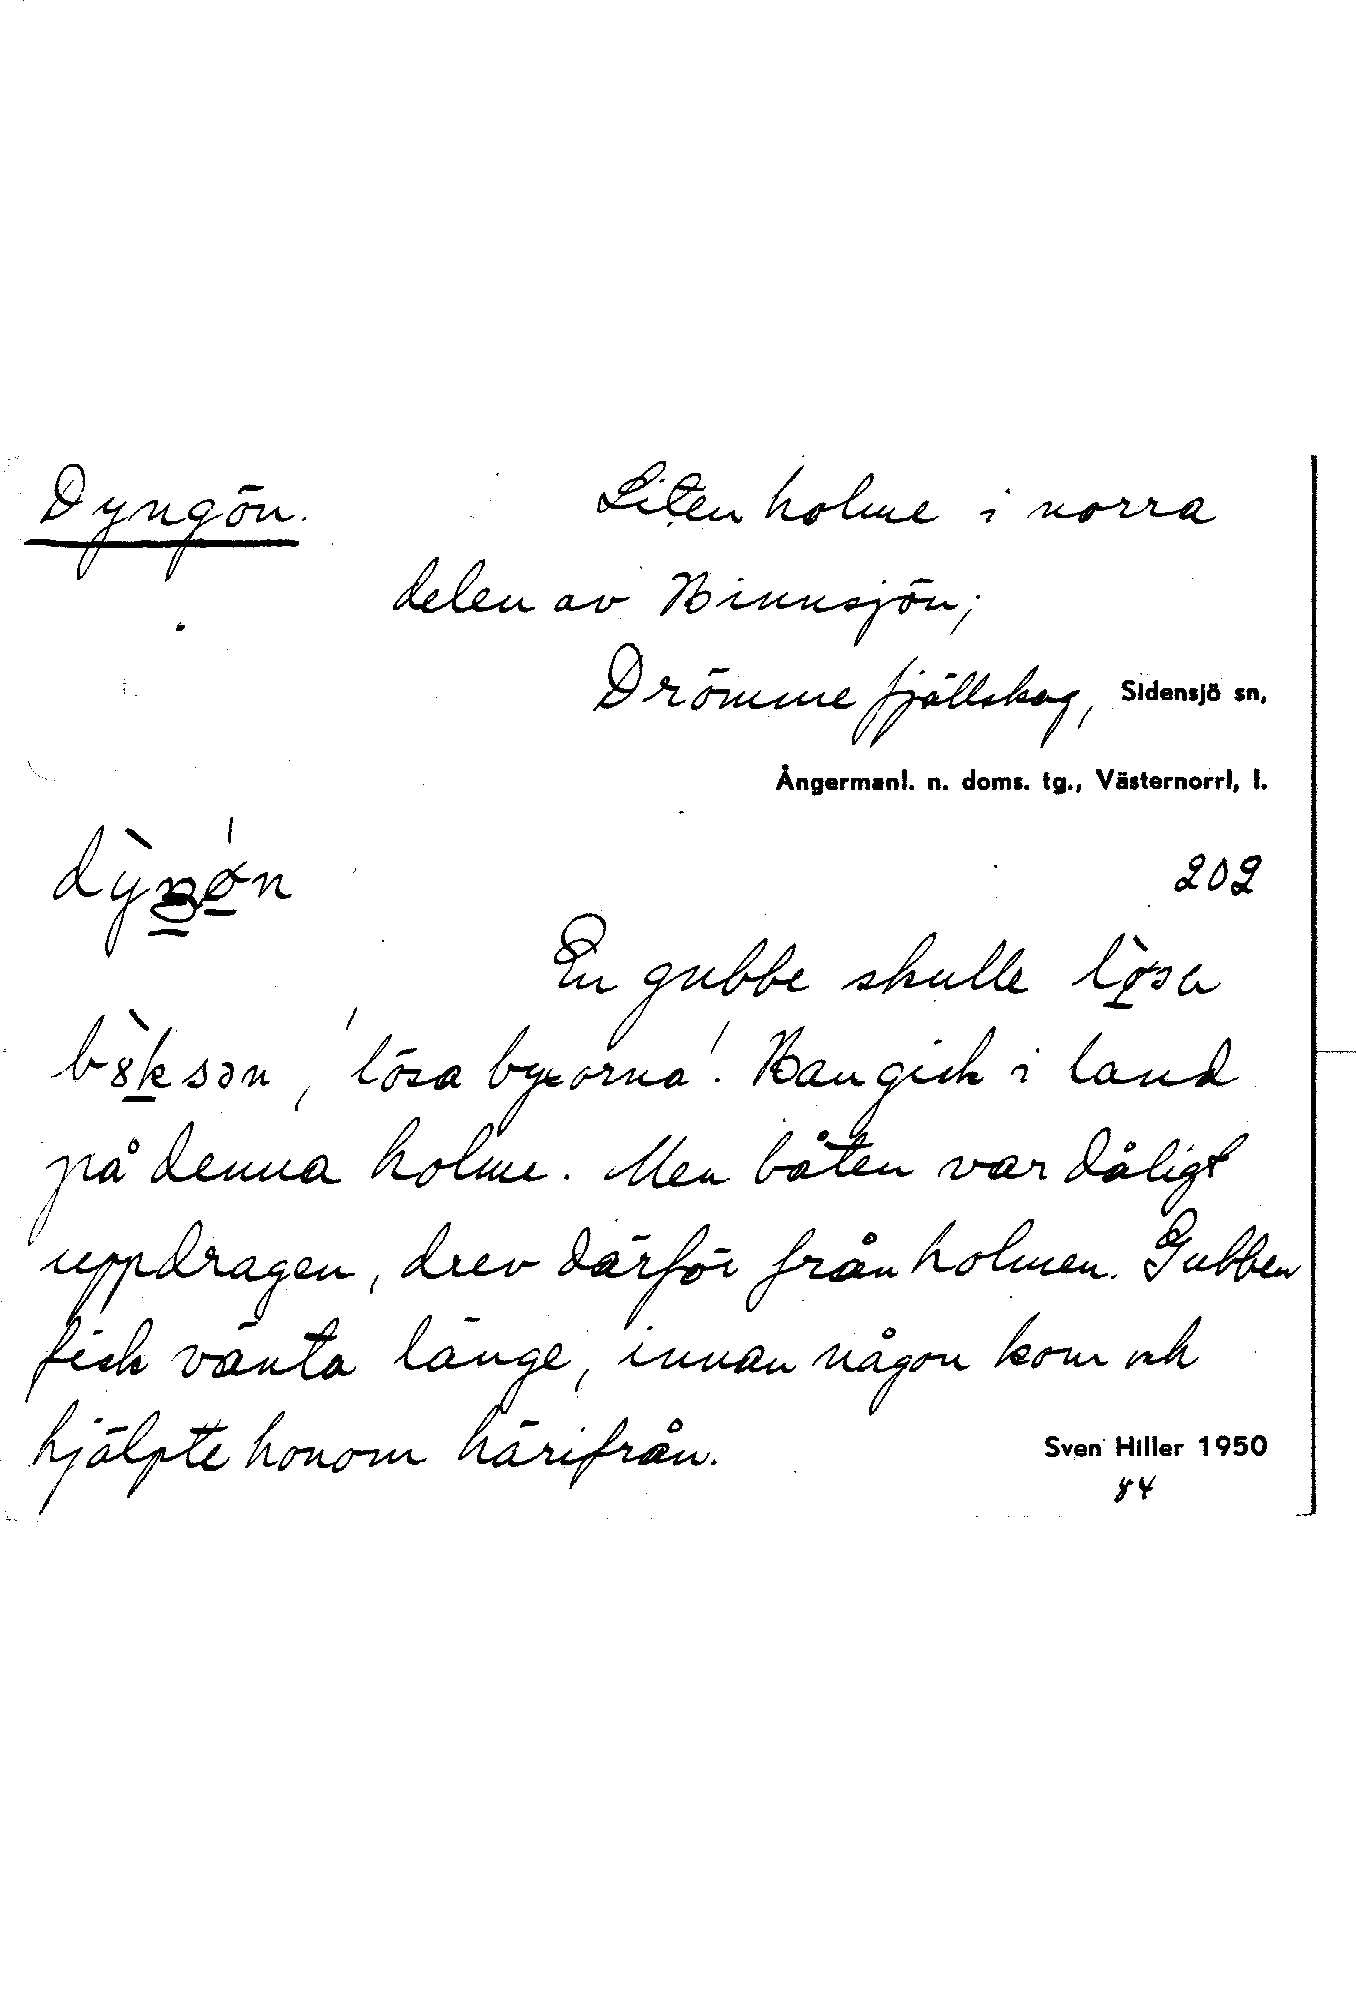 Dyngön. Liten holme i norra
delen av Hinnsjön;
Drömme fjällskog, Sidensjö sn,
Ångermanl. n. doms. tg., Västernorrl, l.
202
En gubbe skulle lø̀sa
bö̀ksən, 'lösa byxorna'. Han gick i land
på denna holme. Men båten var dåligt
uppdragen, drev därför från holmen. Gubben
fick vänta länge, innan någon kom och
hjälpte honom härifrån. Sven Hiller 1950
84